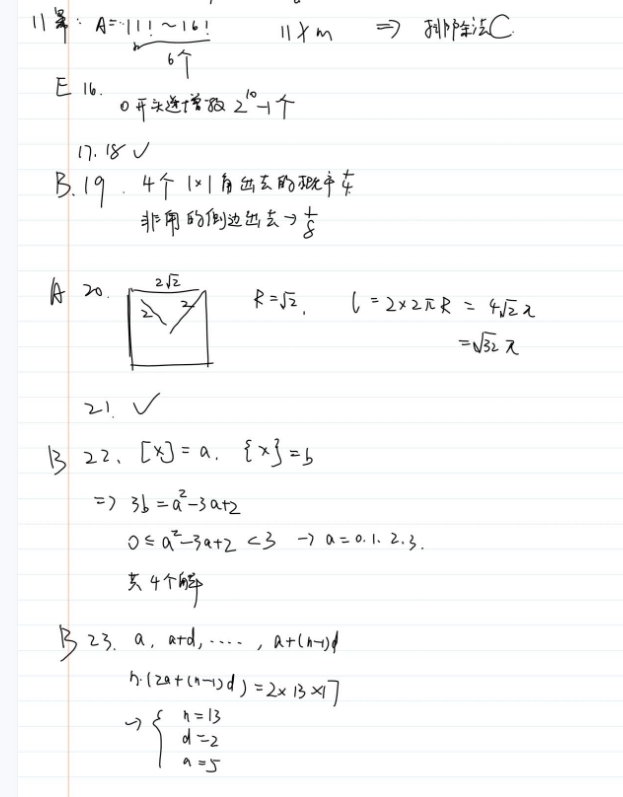 A=11!~16! 11∤m ⇒ 排除法C
6个
E 16.
0开头递增数 2^10-1个
17.18 ✓
B.19. 4个1×1角出去的概率1/4
非角的侧边出去→1/8
A 20. 2√2 R=√2, l=2×2πR=4√2π
2 2 =√32π
21. ✓
B 22. [x]=a. {x}=b
⇒ 3b=a²-3a+2
0≤a²-3a+2<3 → a=0.1.2.3.
共4个解
B 23. a, a+d, ····, a+(n-1)d
n·(2a+(n-1)d)=2×13×17
→ { n=13
d=2
a=5